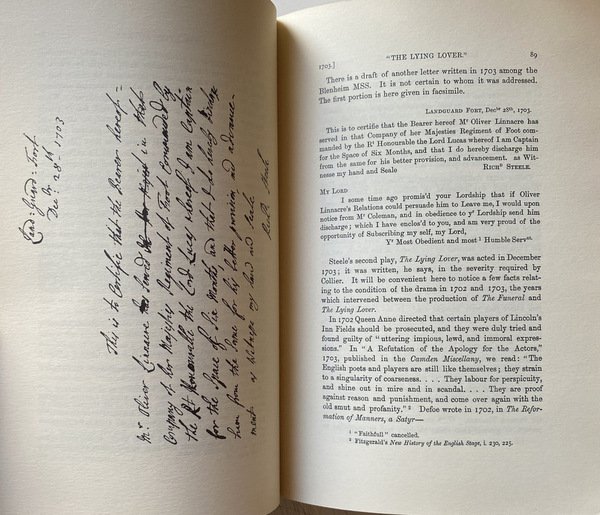 Land: Guard: Fort.
Decbr: 28th 1703
This is to Certifie that the Bearer hereof=
Mr. Oliver Linnacre has served in that
Company of her Majesties Regiment of Foot Commanded by
the Rt. Honourable the Lord Lucas whereof I am Captain
for the Space of Six Months and that I do hereby discharge
him from the same for his better provision and advance-
ment as Witnesse my hand and Seale
Richd Steele
1703.] "THE LYING LOVER." 89
There is a draft of another letter written in 1703 among the
Blenheim MSS. It is not certain to whom it was addressed.
The first portion is here given in facsimile.
LANDGUARD FORT, Decbr 28th, 1703.
This is to certifie that the Bearer hereof Mr Oliver Linnacre has
served in that Company of her Majesties Regiment of Foot com-
manded by the Rt Honourable the Lord Lucas whereof I am Captain
for the Space of Six Months, and that I do hereby discharge him
from the same for his better provision, and advancement. as Wit-
nesse my hand and Seale
RICHD STEELE.
MY LORD
I some time ago promis'd your Lordship that if Oliver
Linnacre's Relations could persuade him to Leave me, I would upon
notice from Mr Coleman, and in obedience to yr Lordship send him
discharge; which I have enclos'd to you, and am very proud of the
opportunity of Subscribing my self, my Lord,
Yr Most Obedient and most1 Humble Servnt.
Steele's second play, The Lying Lover, was acted in December
1703; it was written, he says, in the severity required by
Collier. It will be convenient here to notice a few facts relat-
ing to the condition of the drama in 1702 and 1703, the years
which intervened between the production of The Funeral and
The Lying Lover.
In 1702 Queen Anne directed that certain players of Lincoln's
Inn Fields should be prosecuted, and they were duly tried and
found guilty of "uttering impious, lewd, and immoral expres-
sions." In "A Refutation of the Apology for the Actors,"
1703, published in the Camden Miscellany, we read: "The
English poets and players are still like themselves; they strain
to a singularity of coarseness. . . . They labour for perspicuity,
and shine out in mire and in scandal. . . . They are proof
against reason and punishment, and come over again with the
old smut and profanity."2 Defoe wrote in 1702, in The Refor-
mation of Manners, a Satyr—
1 "Faithfull" cancelled.
2 Fitzgerald's New History of the English Stage, i. 230, 225.